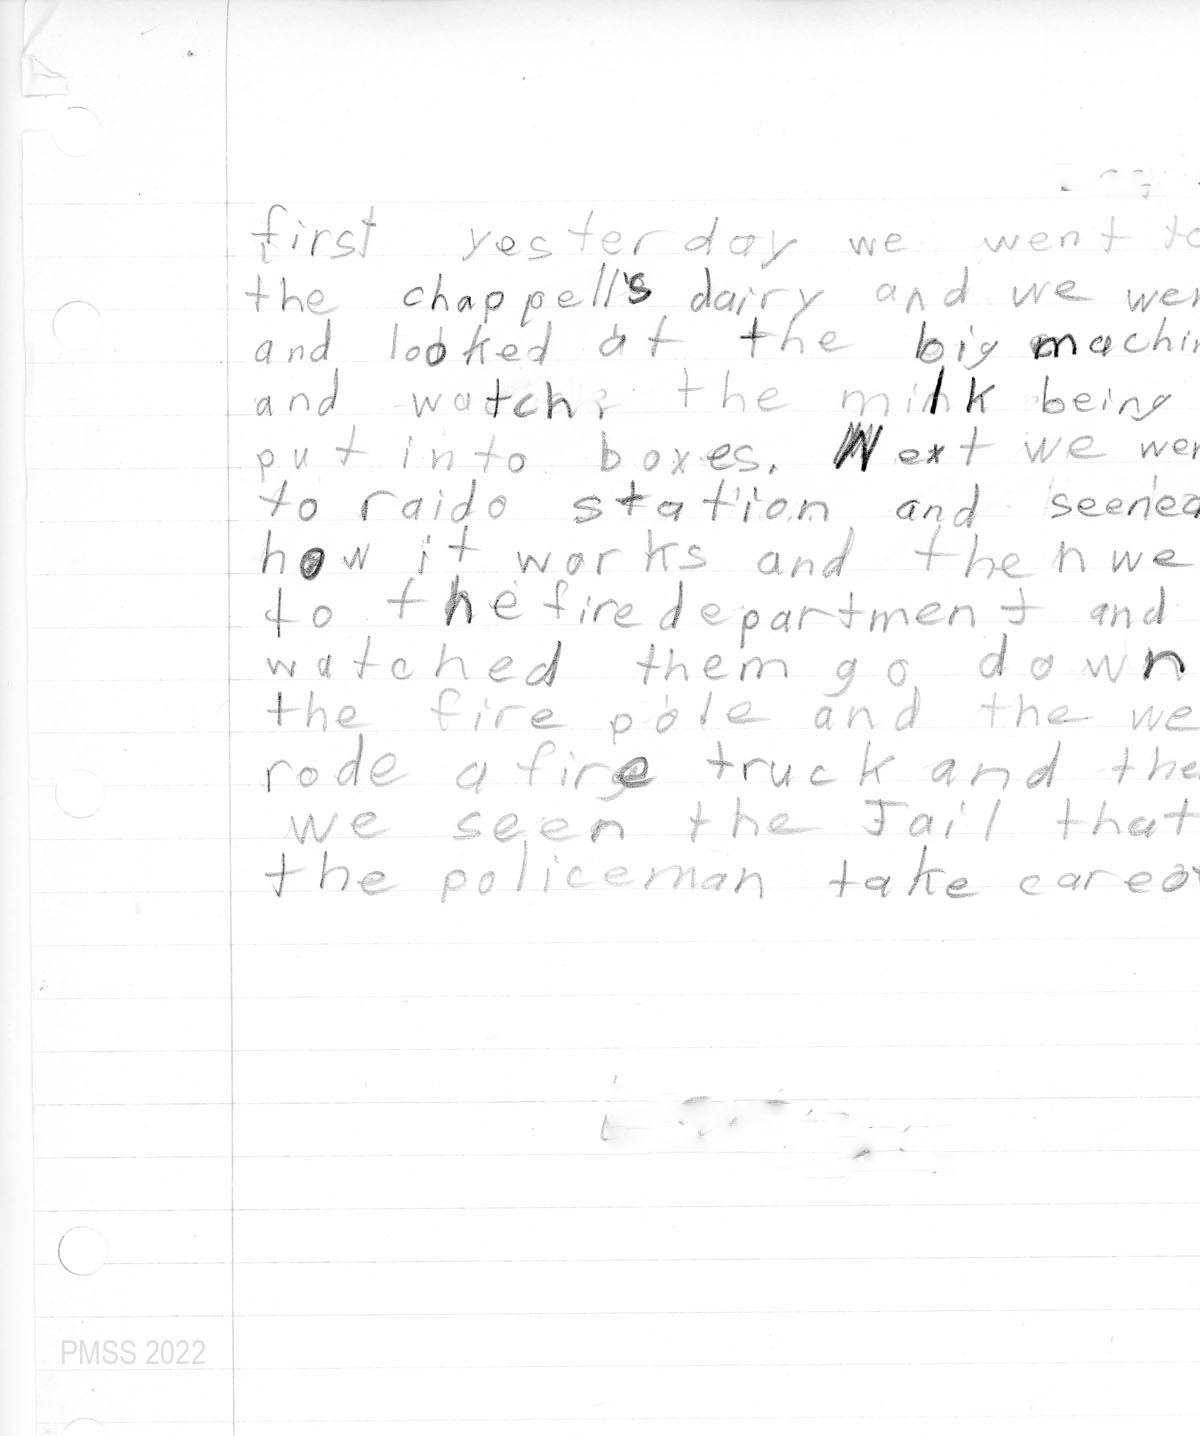 first yesterday we went to
the chappell's dairy and we wer
and looked at the big machin
and watch the milk being
put into boxes. Next we wer
to raido station and seened
how it works and then we
to the fire department and
watched them go down
the fire pole and the we
rode a fire truck and the
we seen the Jail that
the policeman take careof
PMSS 2022